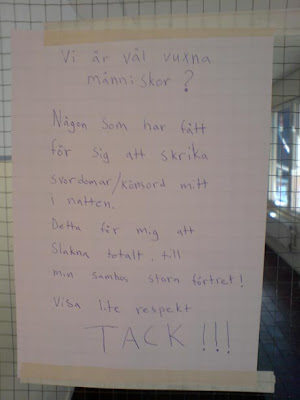 Vi är väl vuxna
människor?
Någon som har fått
för sig att skrika
svordomar/könsord mitt
i natten.
Detta får mig att
slakna totalt, till
min sambos stora förtret!
Visa lite respekt
TACK!!!